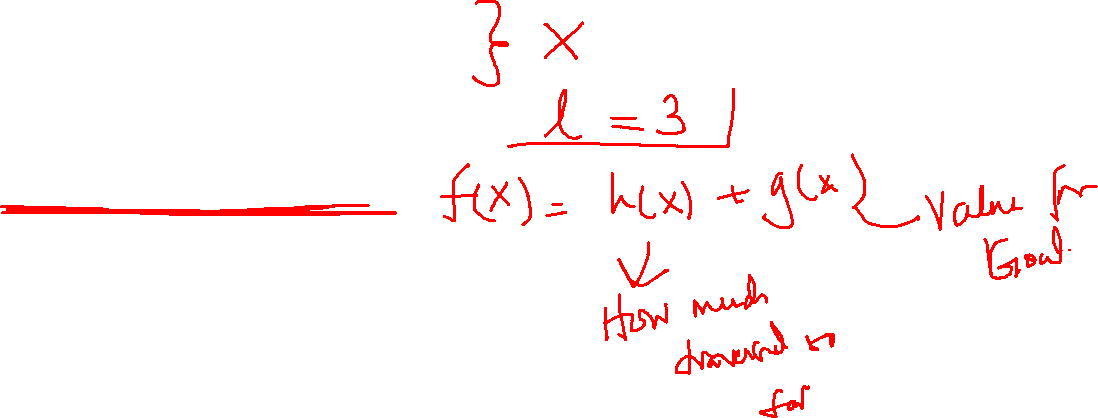 } X
l = 3
f(x) = h(x) + g(x) Value for
Goal.
How much
traversed so
far